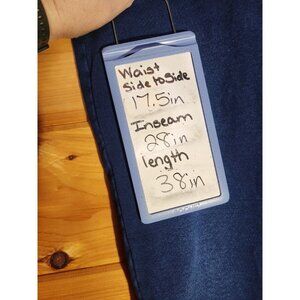 Waist
Side to Side
17.5in
Inseam
28in
length
38in